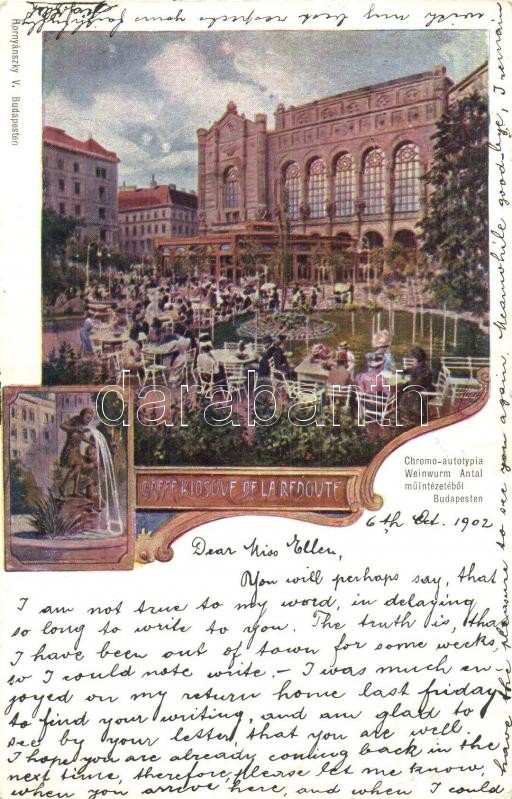 Kornyánszky V. Budapesten
darabanth.com
CAFFE KIOSQUE DE LA REDOUTE
Chromo-autotypia
Weinwurm Antal
műintézetéből
Budapesten
6th Oct. 1902
Dear Miss Ellen,
You will perhaps say, that
I am not true to my word, in delaying
so long to write to you. The truth is, that
I have been out of town for some weeks,
so I could note write. - I was much en-
joyed on my return home last friday
to find your writing, and am glad to
see by your letter, that you are well.
I hope you are already coming back in the
next time, therefore, please let me know,
when you arrive here, and when I could
have the pleasure to see you again. Meanwhile good-bye, I remain
with my best respects yours faithfully